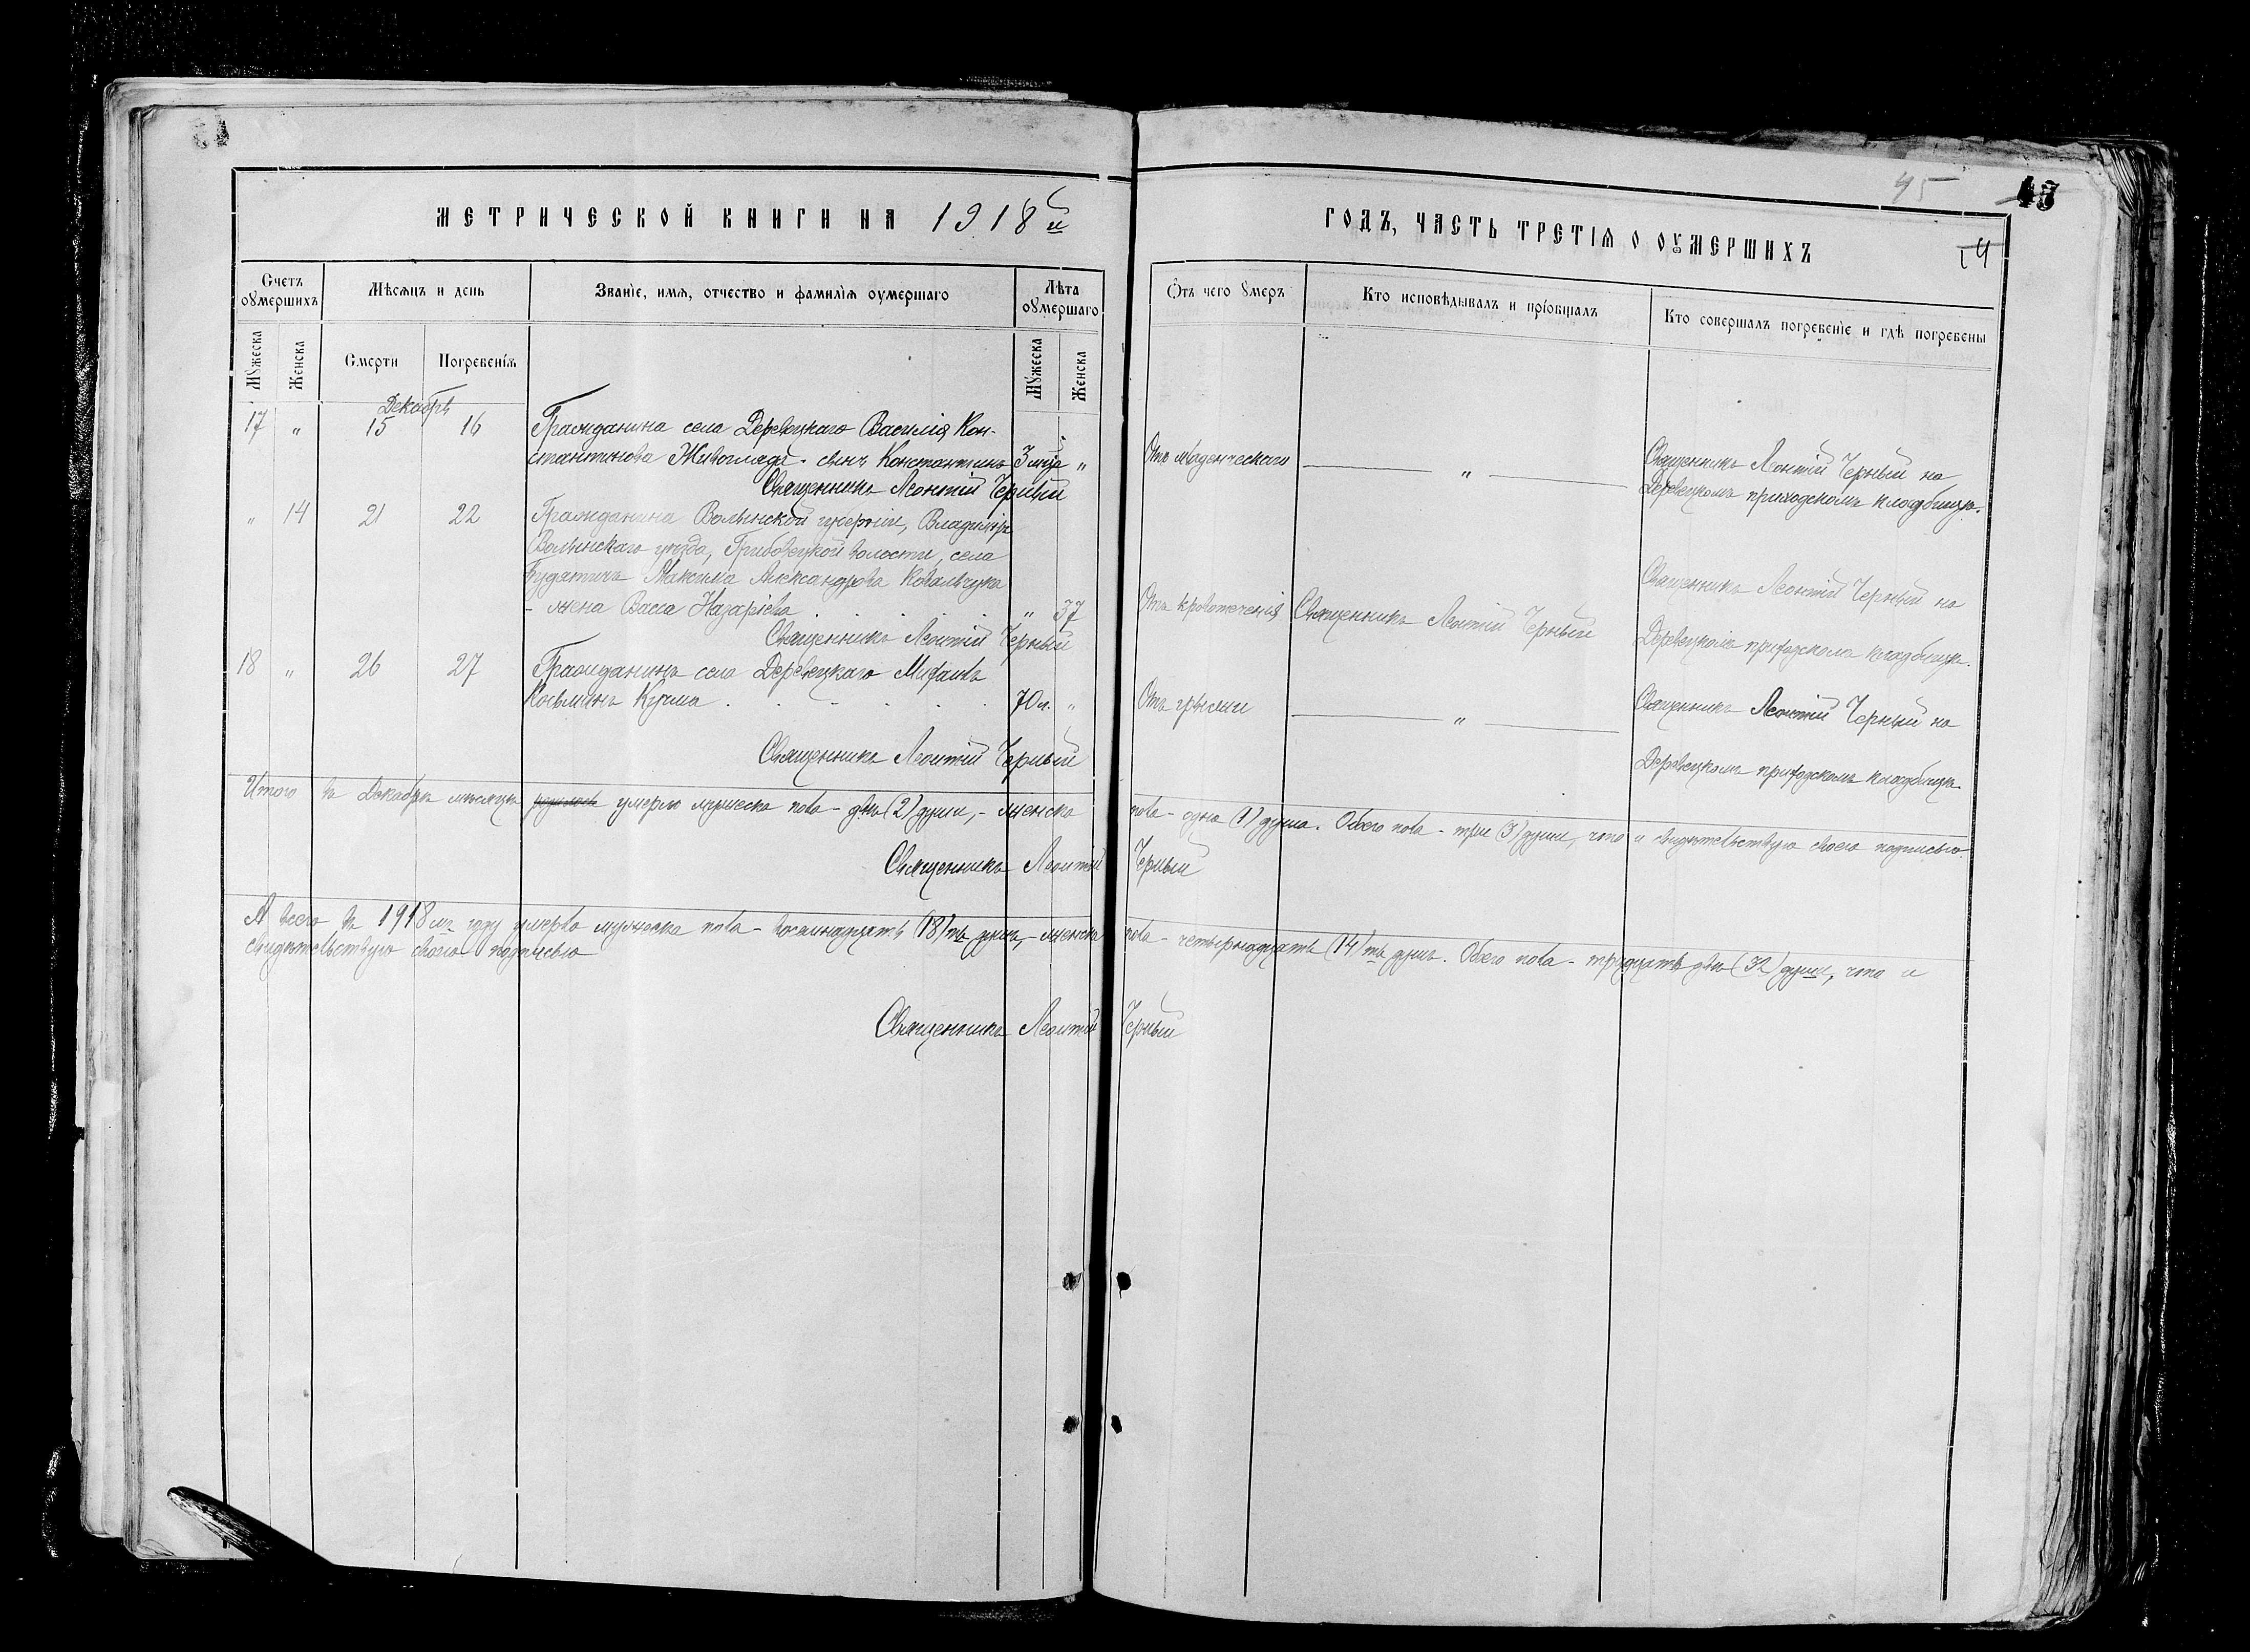 45
14
МЕТРИЧЕСКОЙ КНИГИ НА 1918й
ГОДЪ, ЧАСТЬ ТРЕТІЯ О ОУМЕРШИХЪ
Счетъ оумершихъ
Мѣсяцъ и день
Званіе, имя, отчество и фамилія оумершаго
Лѣта оумершаго
Отъ чего умеръ
Кто исповѣдывалъ и пріобщалъ
Кто совершалъ погребеніе и гдѣ погребены
Мужеска
Женска
Смерти
Погребенія
Мужеска
Женска
Декабрь
17 " 15 16 Гражданина села Деревецкаго Василія Кон-
стантинова Живоглада - сынъ Константинъ 3 мца " Отъ младенческаго " Священникъ Леонтій Черный на
Священникъ Леонтій Черный Деревецкомъ приходскомъ кладбищѣ.
" 14 21 22 Гражданина Волынской губерніи, Владимиръ
Волынскаго уѣзда, Грибовецкой волости, села
Будятичъ Максима Александрова Ковальчука
- жена Васса Назаріева " 37 Отъ кровотеченія Священникъ Леонтій Черный Священникъ Леонтій Черный на
Священникъ Леонтій Черный Деревецкомъ приходскомъ кладбищѣ.
18 " 26 27 Гражданинъ села Деревецкаго Михаилъ
Косьминъ Кузма 70 л. " Отъ грыжи " Священникъ Леонтій Черный на
Священникъ Леонтій Черный Деревецкомъ приходскомъ кладбищѣ.
Итого въ Декабрѣ мѣсяцѣ умерло мужеска пола - двѣ (2) души, - женска пола - одна (1) душа. Обоего пола - три (3) души, что и свидѣтельствую своею подписью.
Священникъ Леонтій Черный
А всего въ 1918мъ году умерло мужеска пола - восемнадцать (18)ть душъ, - женска пола - четырнадцать (14)ть душъ. Обоего пола - тридцать двѣ (32) души, что и
свидѣтельствую своею подписью
Священникъ Леонтій Черный